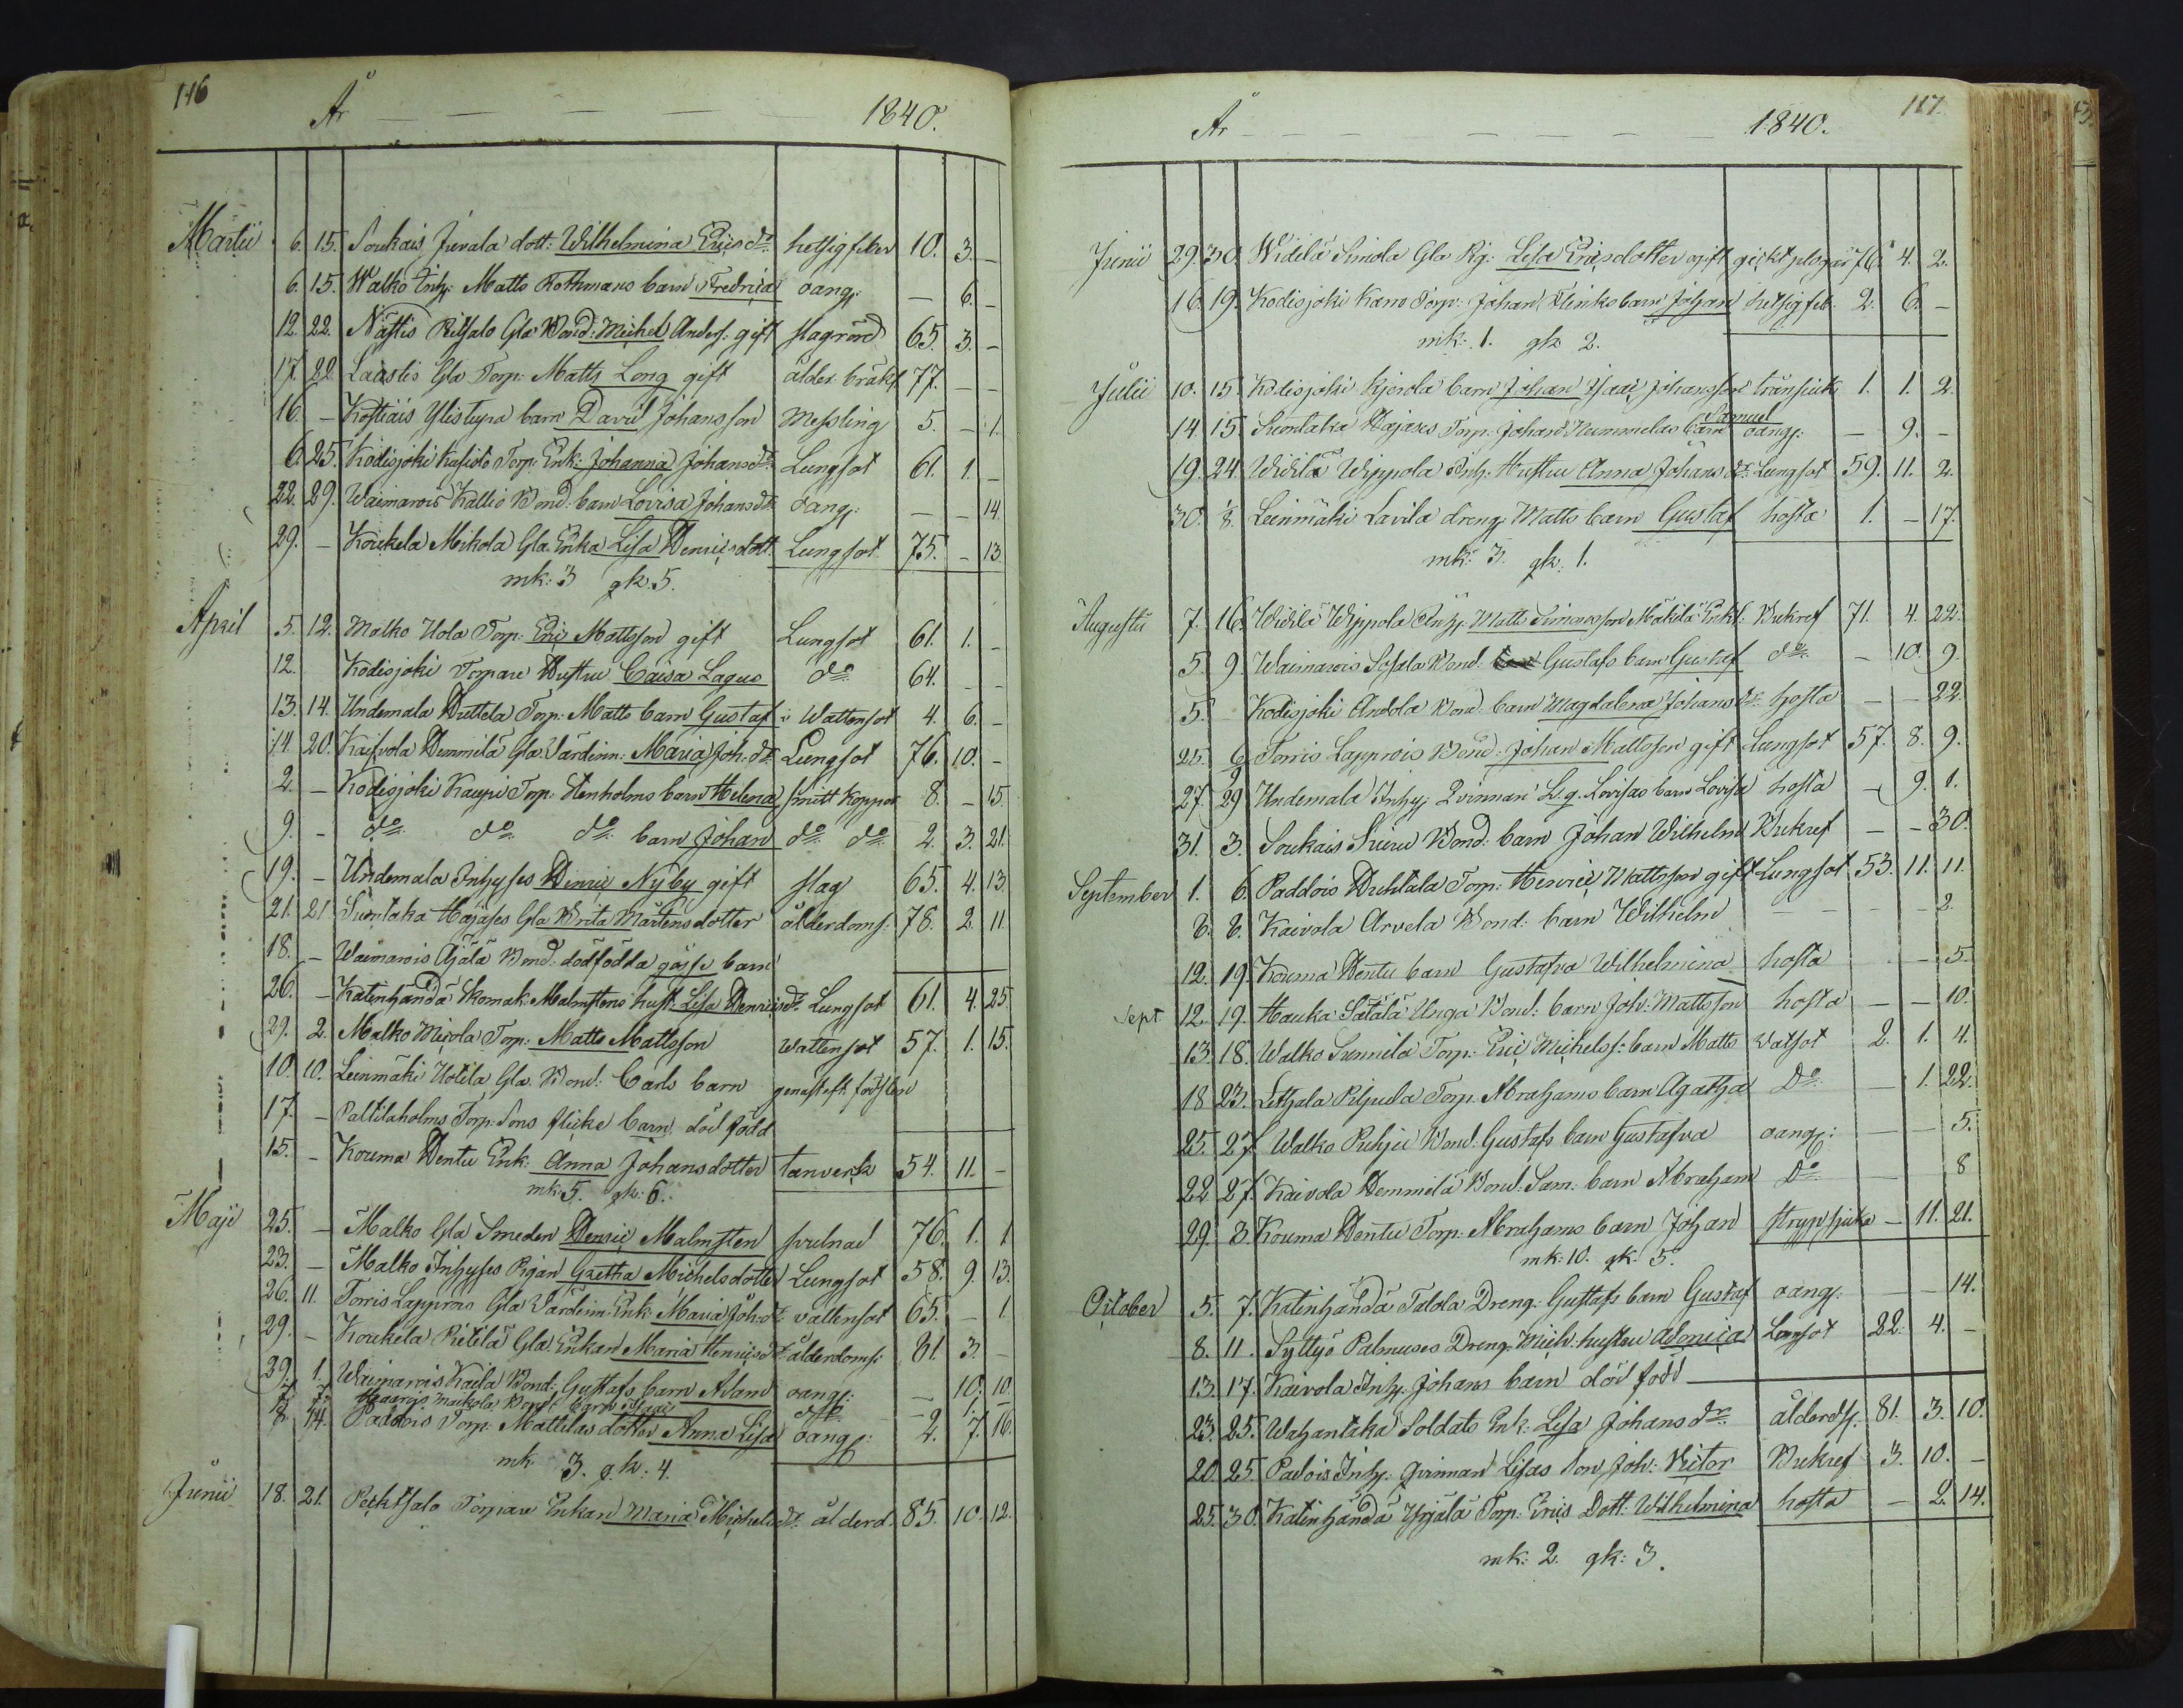 116
År — — — — — 1840.
Martii 6. 15. Soukais Juvala dott: Wilhelmina Ericsdr hetsig feber 10. 3. —
6. 15. Walko Inh: Matts Rothmans barn Fredrica oang: — 6. —
12. 22. Nästis Gla Bond: Michel Anders: gift slagrörd 65. 3. —
17. 22. Laaslis Gla Torp: Matts Long gift ålder. bräkl 77. — —
16. — Koskiais Ylistupa barn David Johansson Messling 5. — 1.
6. 25. Kodisjoki Torp: Enk: Johanna Johansdr Lungsot 61. 1. —
22. 29. Waimarois Kallio Bond: barn Lovisa Johansdr oang: — — 14.
29. — Koukela Mikola Gla Enka Lisa Henricsdott. Lungsot 75. — 13
mk: 3 qk: 5.
April 5. 12. Malko Uola Torp: Eric Mattsson gift Lungsot 61. 1. —
12. Kodisjoki Torpare Hustru Caisa Lagus do 64. — —
13. 14. Undemala Huttela Torp: Matts barn Gustaf i Wattensot 4. 6. —
14. 20. Kaivola Hemmilä Gla Värdinn: Maria Joh:dr Lungsot 76. 10. —
2. — Kodisjoki Kaupi Torp: Stenholms barn Helena smitt koppor 8. — 15.
9. — do do do barn Johan do do 2. 3. 21.
19. — Undemala Inhyses Henric Nyby gift slag 65. 4. 13.
21. 21 Suontaka Hajases Gla Brita Mårtensdotter ålderdoms: 78. 2. 11
18. — Waimarois Äjälä Bond: dödfödda gosse barn
26. — Katinhändä Skomak: Malmstens hust: Lisa Henricsdr Lungsot 61. 4. 25
29. 2. Malko Torp: Matts Mattsson Wattensot 57. 1. 15.
10. 10. Leinmäki Uotila Gla Bond: Carls barn genast eft. födslen
17. — Paltilaholms Torp: Sons flicke barn död född
15. — Kouma Hentu Enk: Anna Johansdotter tanverk 54. 11. —
mk: 5. qk: 6.
Maji 25. — Malko Gla Smeden Henric Malmsten svulnad 76. 1. 1
23. — Malko Inhyses Pigan Gretha Michelsdotter Lungsot 58. 9. 13.
26. 11. Torris Lapprois Gla Värdinn: Enk: Maria Joh:dr vattensot 65. — 1
29. — Koukela Pietilä Gla Enkan Maria Henricsdr ålderdoms: 81. 3. —
29. 1. Waimarois Kaila Bond: Gustafs barn Adam oang: — 10. 10.
7. 7. Maikola Bond: barn Isaac do — 1. —
8. 14. Paddois Torp: Mattilas dotter Anna Lisa oang: 2. 7. 16.
mk 3. qk: 4.
Junii 18. 21. Torpare Enkan Maria Michelsdr ålderd. 85. 10. 12.
117.
År — — — — — — 1840.
Junii 29. 30. Widilä Simola Gla Pig: Lisa Ericsdotter ogift 76. 4. 2.
16. 19. Kodisjoki Karro Torp: Johan Flinks barn Johan hetsig feb. 2. 6. —
mk: 1. qk 2.
Julii 10. 15. Kodisjoki Kjerola barn Johan Isac Johansson transiuk 1. 1. 2.
14. 15. Suontaka Hajases Torp: Johan Nummelas barn Samuel oang: — 9. —
19. 24. Widilä Wippola Inh: Hustru Anna Johansdr Lungsot 59. 11. 2.
30. 8. Leinmäki Lavila dreng Matts barn Gustaf hosta 1. — 17.
mk: 3. qk: 1.
Augusti 7. 16. Widilä Wippola Inh: Matts Simonsson Mäkilä Enkl: Bukref 71. 4. 22.
5. 9. Waimarois Sofala Bond: Gustafs barn Gustaf do — 10. 9.
5. Kodisjoki Andola Bond: barn Magdalena Johansdr hosta — — 22
25. 6. Torris Lapprois Bond: Johan Mattsson gift Lungsot 57. 8. 9.
27. 29 Undemala Inhy: Qvinnan L. g. Lovisas barn Lovisa hosta — 9. 1.
31. 3. Soukais Bond: barn Johan Wilhelm Bukref — — 30.
September 1. 6. Paddois Huhtala Torp: Henric Mattsson gift Lungsot 53. 11. 11.
6. 6. Kaivola Arvela Bond: barn Wilhelm — — — — 2.
12. 19. Kouma Hentu barn Gustafva Wilhelmina hosta — — 5.
Sept 12. 19. Hauka Sätälä Unga Bond: barn Joh: Mattsson hosta — — 10.
13. 18. Walko Sunnila Torp: Eric Michels: barn Matts watsot 2. 1. 4.
18 23. Lethala Piljula Torp. Abrahams barn Agatha Do — 1. 22.
25. 27. Walko Bond: Gustafs barn Gustafva oang: — — 5.
22. 27. Kaivola Hemmilä Bond: Sam: barn Abraham Do — 8
29. 3. Kouma Hentu Torp: Abrahams barn Johan strypsjuka — 11. 21.
mk: 10. qk: 5.
October 5. 7. Katinhändä Talola Dreng: Gustafs barn Gustaf oang: — — 14.
8. 11. Syttyö Palmuses Dreng Mich: hustru 22. 4. —
13. 17. Kaivola Inh: Johans barn död född
23. 25. Wahantaka Soldats Enk: Lisa Johansdr ålderds. 81. 3. 10.
20. 25. Padois Inh: Qvinnan Lisas son Joh: Victor Bukref 3. 10. —
25. 30. Katinhändä Yrjälä Torp: Erics Dott: Wilhelmina hosta — 2. 14.
mk: 2. qk: 3.